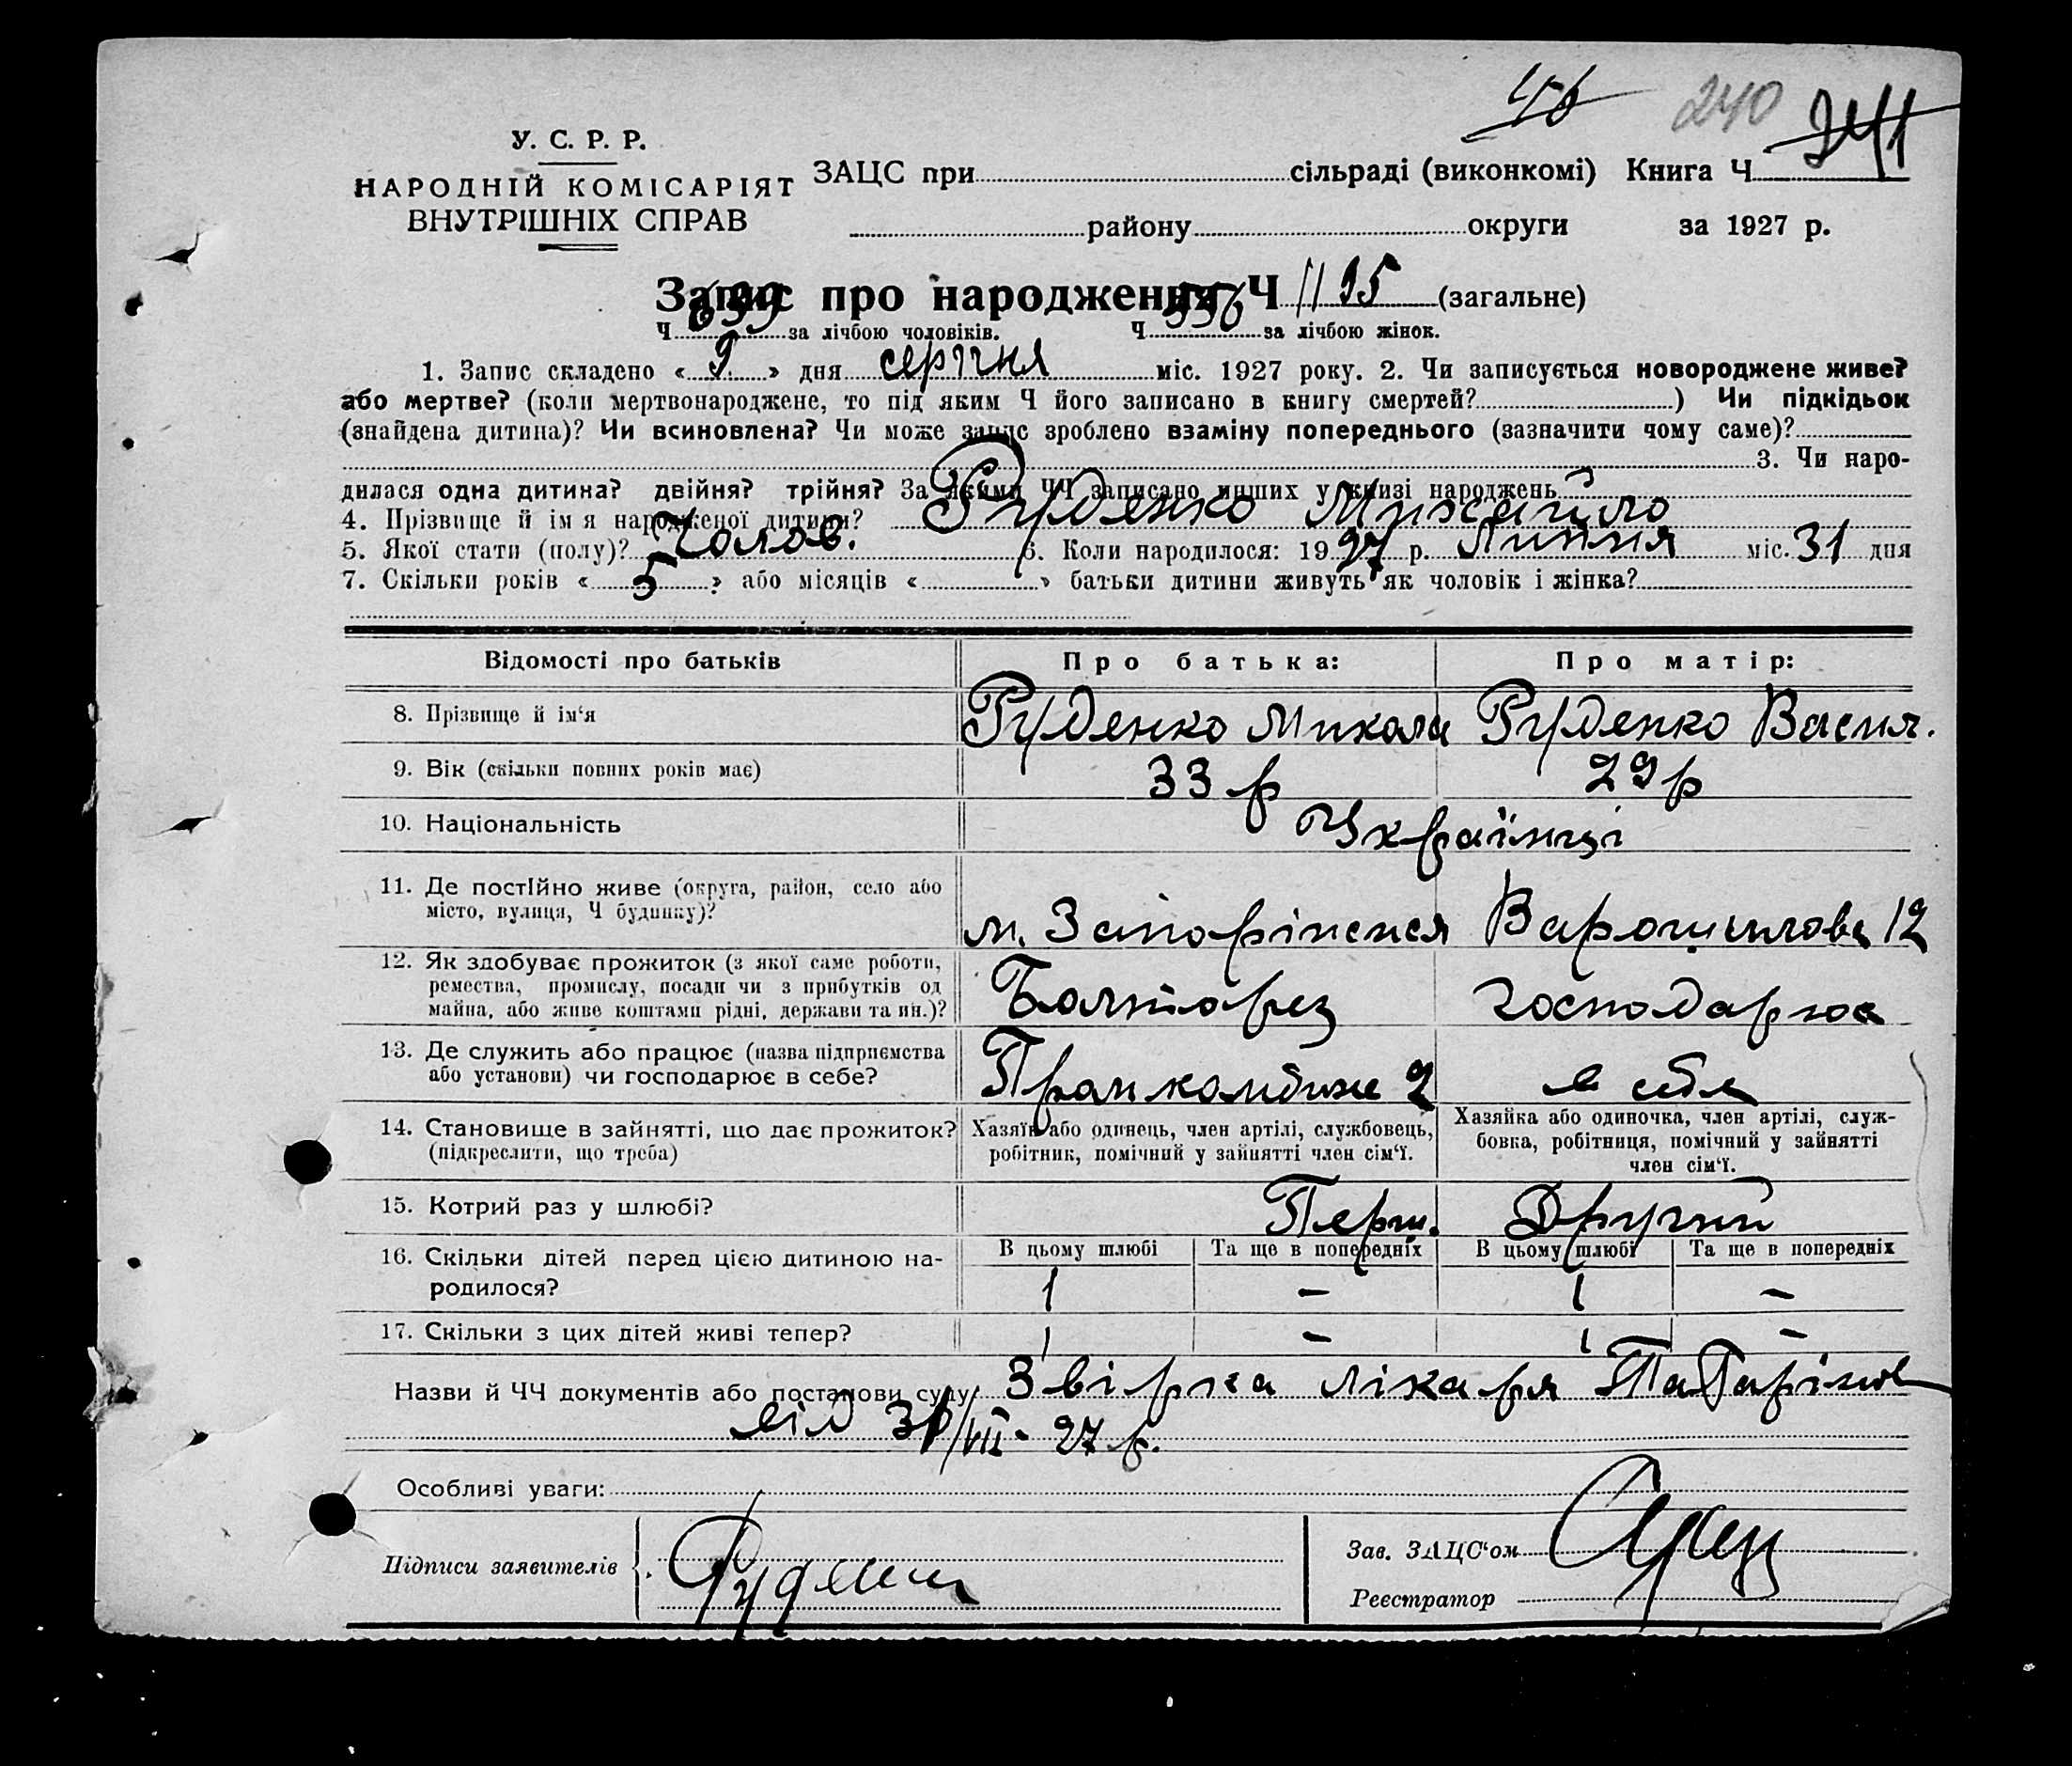 46 240 241
У. С. Р. Р.
НАРОДНІЙ КОМІСАРІЯТ
ВНУТРІШНІХ СПРАВ
ЗАЦС при сільраді (виконкомі) Книга Ч
району округи за 1927 р.
Запис про народження Ч 1195 (загальне)
Ч 639 за лічбою чоловіків. Ч 556 за лічбою жінок.
1. Запис складено « 9 » дня серпня міс. 1927 року. 2. Чи записується новороджене живе?
або мертве? (коли мертвонароджене, то під яким Ч його записано в книгу смертей? ) Чи підкідьок
(знайдена дитина)? Чи всиновлена? Чи може запис зроблено взаміну попереднього (зазначити чому саме)?
3. Чи наро-
дилася одна дитина? двійня? трійня? За якими ЧЧ записано инших у книзі народжень
4. Прізвище й ім я народженої дитини? Руденко Михайло
5. Якої стати (полу)? Чолов. 6. Коли народилося: 1927 р. Липня міс. 31 дня
7. Скільки років « 5 » або місяців « » батьки дитини живуть як чоловік і жінка?
Відомості про батьків Про батька: Про матір:
8. Прізвище й ім‘я Руденко Микола Руденко Васил.
9. Вік (скільки повних років має) 33 р 29 р
10. Національність Українці
11. Де постійно живе (округа, район, село або
місто, вулиця, Ч будинку)? м. Запоріжжя Варошилова 12
12. Як здобуває прожиток (з якої саме роботи,
ремества, промислу, посади чи з прибутків од
майна, або живе коштами рідні, держави та ин.)? Болторез господарює
13. Де служить або працює (назва підприємства
або установи) чи господарює в себе? Промкомбине 2 в себе
14. Становище в зайнятті, що дає прожиток?
(підкреслити, що треба)
Хазяїн або одинець, член артілі, службовець,
робітник, помічний у зайнятті член сім‘ї.
Хазяйка або одиночка, член артілі, служ-
бовка, робітниця, помічний у зайнятті
член сім‘ї.
15. Котрий раз у шлюбі? Перш. Другий
16. Скільки дітей перед цією дитиною на-
родилося?
В цьому шлюбі Та ще в попередніх В цьому шлюбі Та ще в попередніх
1 – 1 –
17. Скільки з цих дітей живі тепер? 1 – 1 –
Назви й ЧЧ документів або постанови суду: Звірка лікаря
від 31/VII- 27 р.
Особливі уваги:
Підписи заявителів Руденко
Зав. ЗАЦС‘ом
Реєстратор